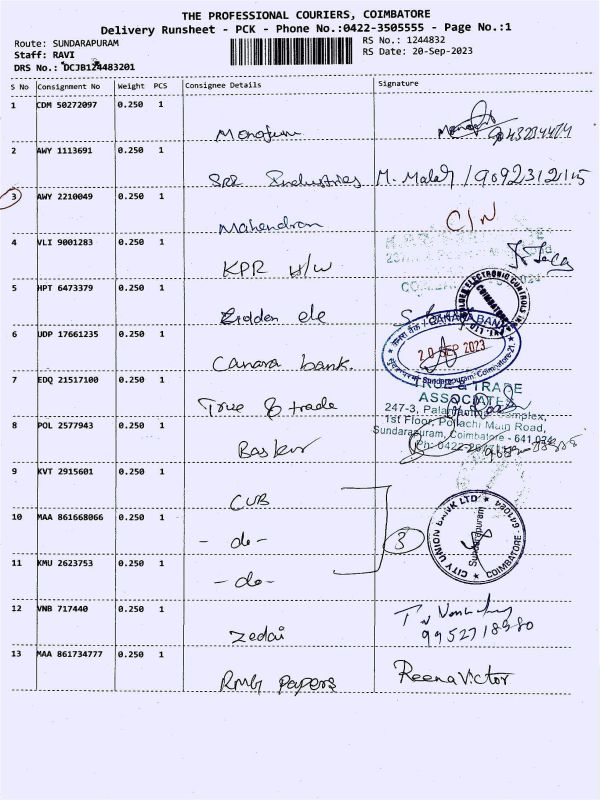 THE PROFESSIONAL COURIERS, COIMBATORE
Delivery Runsheet - PCK - Phone No.:0422-3505555 - Page No.:1
Route: SUNDARAPURAM
RS No.: 1244832
Staff: RAVI
RS Date: 20-Sep-2023
DRS No.: DCJB124483201
S No Consignment No Weight PCS Consignee Details Signature
1 CDM 50272097 0.250 1
2 AWY 1113691 0.250 1
SRR Industries M. Malar / 9692312115
3 AWY 2210049 0.250 1
Mahendran C/N
4 VLI 9001283 0.250 1
KPR H/W
5 HPT 6473379 0.250 1
Golden ele
GOLDEN ELECTRONIC CONTROLS
COIMBATORE
6 UDP 17661235 0.250 1
Canara bank.
CANARA BANK
20 SEP 2023
Sundarapuram, Coimbatore-21.
7 EDQ 21517100 0.250 1
True & trade
TRUE & TRADE
ASSOCIATES
247-3, Complex,
1st Floor, Pollachi Main Road,
Sundarapuram, Coimbatore - 641 024
8 POL 2577943 0.250 1
Baskar
9 KVT 2915601 0.250 1
CUB
10 MAA 861668066 0.250 1
- do -
3
CITY UNION BANK LTD
Sundarapuram
COIMBATORE - 641024
11 KMU 2623753 0.250 1
- do -
12 VNB 717440 0.250 1
Zedai
9952718980
13 MAA 861734777 0.250 1
RMG Papers Reena Victor